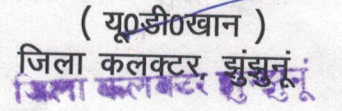 ( यू0डी0खान )
जिला कलक्टर, झुंझुनूं
जिला कलक्टर झुंझुनूं